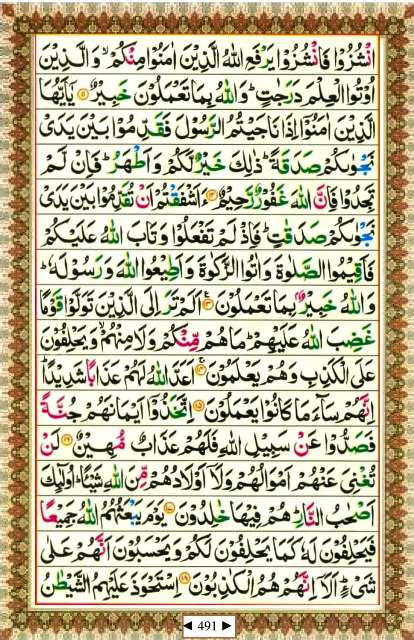 انْشُزُوْا فَانْشُزُوْا يَرْفَعِ اللّٰهُ الَّذِيْنَ اٰمَنُوْا مِنْكُمْ ۙ وَالَّذِيْنَ
اُوْتُوا الْعِلْمَ دَرَجٰتٍ ؕ وَاللّٰهُ بِمَا تَعْمَلُوْنَ خَبِيْرٌ ﴿۱۱﴾ يٰۤاَيُّهَا
الَّذِيْنَ اٰمَنُوْۤا اِذَا نَاجَيْتُمُ الرَّسُوْلَ فَقَدِّمُوْا بَيْنَ يَدَىْ
نَجْوٰىكُمْ صَدَقَةً ؕ ذٰلِكَ خَيْرٌ لَّكُمْ وَاَطْهَرُ ؕ فَاِنْ لَّمْ
تَجِدُوْا فَاِنَّ اللّٰهَ غَفُوْرٌ رَّحِيْمٌ ﴿۱۲﴾ ءَاَشْفَقْتُمْ اَنْ تُقَدِّمُوْا بَيْنَ يَدَىْ
نَجْوٰىكُمْ صَدَقٰتٍ ؕ فَاِذْ لَمْ تَفْعَلُوْا وَتَابَ اللّٰهُ عَلَيْكُمْ
فَاَقِيْمُوا الصَّلٰوةَ وَاٰتُوا الزَّكٰوةَ وَاَطِيْعُوا اللّٰهَ وَرَسُوْلَهٗ ؕ
وَاللّٰهُ خَبِيْرٌۢ بِمَا تَعْمَلُوْنَ ﴿۱۳﴾ اَلَمْ تَرَ اِلَى الَّذِيْنَ تَوَلَّوْا قَوْمًا
غَضِبَ اللّٰهُ عَلَيْهِمْ ؕ مَا هُمْ مِّنْكُمْ وَلَا مِنْهُمْ ۙ وَيَحْلِفُوْنَ
عَلَى الْكَذِبِ وَهُمْ يَعْلَمُوْنَ ﴿۱۴﴾ اَعَدَّ اللّٰهُ لَهُمْ عَذَابًا شَدِيْدًا ؕ
اِنَّهُمْ سَآءَ مَا كَانُوْا يَعْمَلُوْنَ ﴿۱۵﴾ اِتَّخَذُوْۤا اَيْمَانَهُمْ جُنَّةً
فَصَدُّوْا عَنْ سَبِيْلِ اللّٰهِ فَلَهُمْ عَذَابٌ مُّهِيْنٌ ﴿۱۶﴾ لَنْ
تُغْنِىَ عَنْهُمْ اَمْوَالُهُمْ وَلَاۤ اَوْلَادُهُمْ مِّنَ اللّٰهِ شَيْـًٔا ؕ اُولٰٓئِكَ
اَصْحٰبُ النَّارِ ؕ هُمْ فِيْهَا خٰلِدُوْنَ ﴿۱۷﴾ يَوْمَ يَبْعَثُهُمُ اللّٰهُ جَمِيْعًا
فَيَحْلِفُوْنَ لَهٗ كَمَا يَحْلِفُوْنَ لَكُمْ وَيَحْسَبُوْنَ اَنَّهُمْ عَلٰى
شَىْءٍ ؕ اَلَاۤ اِنَّهُمْ هُمُ الْكٰذِبُوْنَ ﴿۱۸﴾ اِسْتَحْوَذَ عَلَيْهِمُ الشَّيْطٰنُ
◄ 491 ►